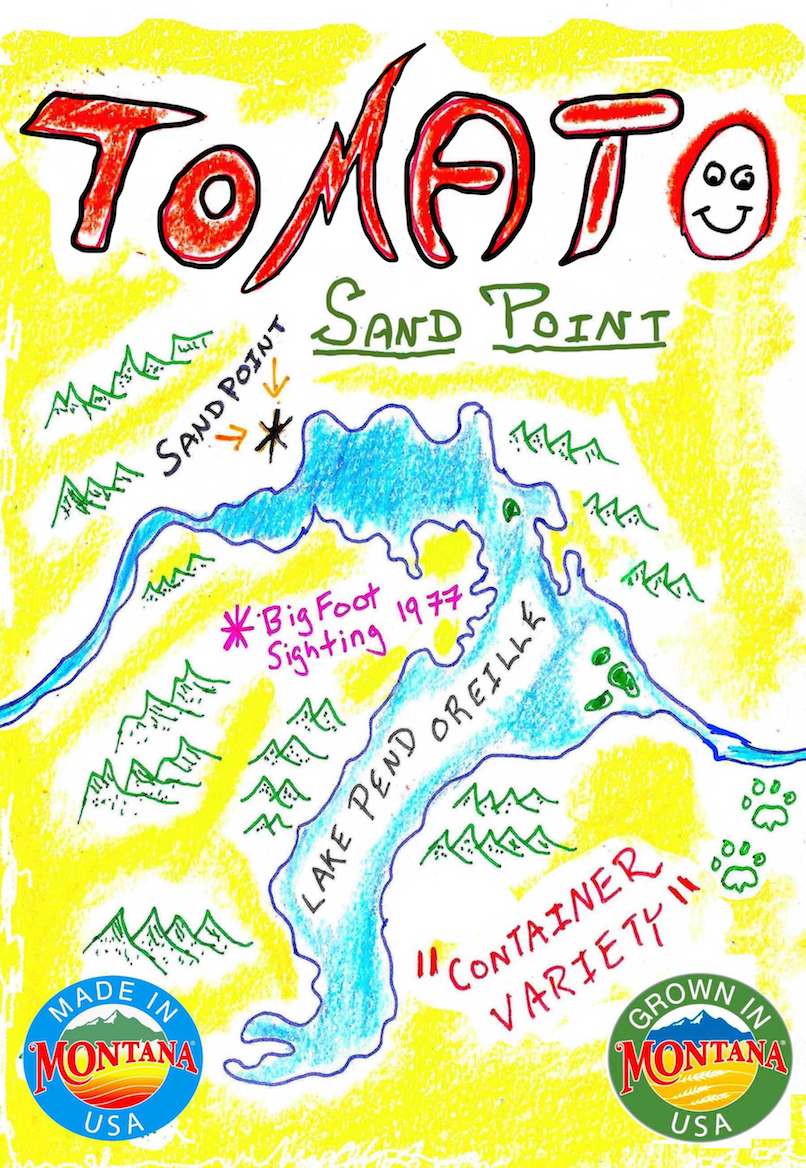 TOMATO
SAND POINT
SANDPOINT
*BigFoot
Sighting 1977
LAKE PEND OREILLE
"CONTAINER
VARIETY"
MADE IN
MONTANA®
USA
GROWN IN
MONTANA®
USA